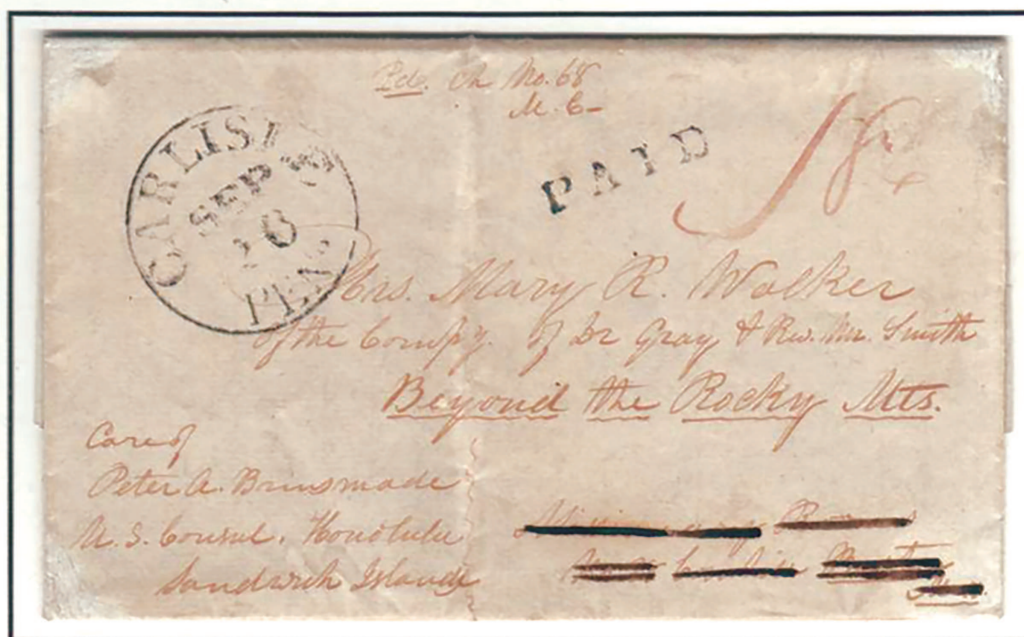 Pd. Ch No. 68
M. C-
CARLISLE
SEP
PEN.
PAID
18
Mrs. Mary R. Walker
of the Compy. of Dr Gray & Rev. Mr. Smith
Beyond the Rocky Mts.
Care of
Peter A. Brinsmade
U. S. Consul. Honolulu
Sandwich Islands
Missionary Rooms